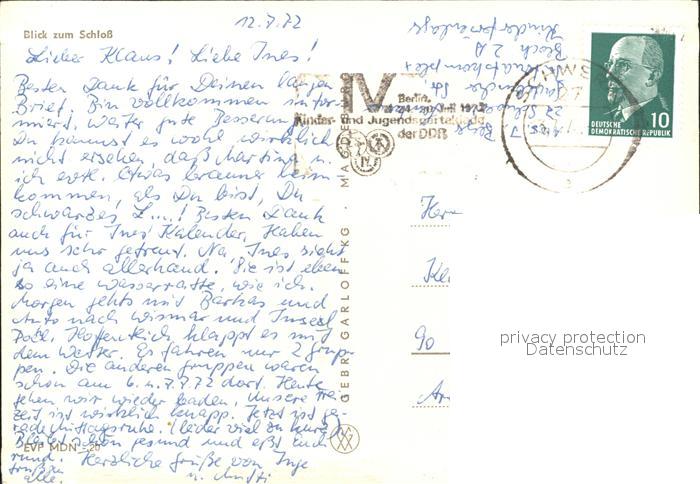 12.7.72
Blick zum Schloß
Lieber Klaus! Liebe Ines!
Besten Dank für Deinen langen
Brief. Bin vollkommen infor-
miert. Weiter gute Besserung
Du kannst es wohl wirklich
nicht ersehen, daß Martina u.
ich evtl. etwas brauner heim
kommen, als Du bist, Du
schwarzes L....! Besten Dank
auch für Ines' Kalender, haben
uns sehr gefreut. Na, Ines sieht
ja auch allerhand. Sie ist eben
so eine Wasserratte, wie ich.
Morgen gehts mit Barkas und
Auto nach Wismar und Insel
Poel. Hoffentlich klappt es mit
dem Wetter. Es fahren nur 2 Grup-
pen. Die anderen Gruppen waren
schon am 6. u. 7.7.72 dort. Heute
gehen wir wieder baden. Unsere Frei
zeit ist wirklich knapp. Jetzt ist ge-
rade Mittagsruhe. (leider viel zu kurz)
Bleibt schön gesund und eßt euch
rund. Herzliche Grüße von Inge
u. Mutti
Grüßen
alle.
EVP MDN -,20
GEBR. GARLOFF KG · MAGDEBURG
IV
Berlin,
24.-30. Juli 1972
Kinder- und Jugendspartakiade
der DDR
Block 2 A
Kinderferienlager
DEUTSCHE
DEMOKRATISCHE REPUBLIK
10
90
privacy protection
Datenschutz